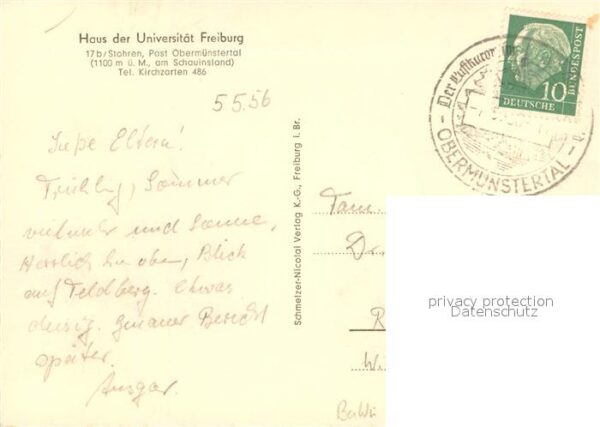 Haus der Universität Freiburg
17b/Stohren, Post Obermünstertal
(1100 m ü. M., am Schauinsland)
Tel. Kirchzarten 486
5.5.56
Liebe Eltern!
Frühling, Sommer
und Sonne,
Herrlich hier oben, Blick
auf Feldberg. Etwas
diesig. Genauer Bericht
später.
Ansgar.
Schmelzer-Nicolai Verlag K.-G., Freiburg i. Br.
Der Luftkurort im
OBERMÜNSTERTAL
10
DEUTSCHE
BUNDESPOST
Fam.
Dr.
R
Wi
privacy protection
Datenschutz